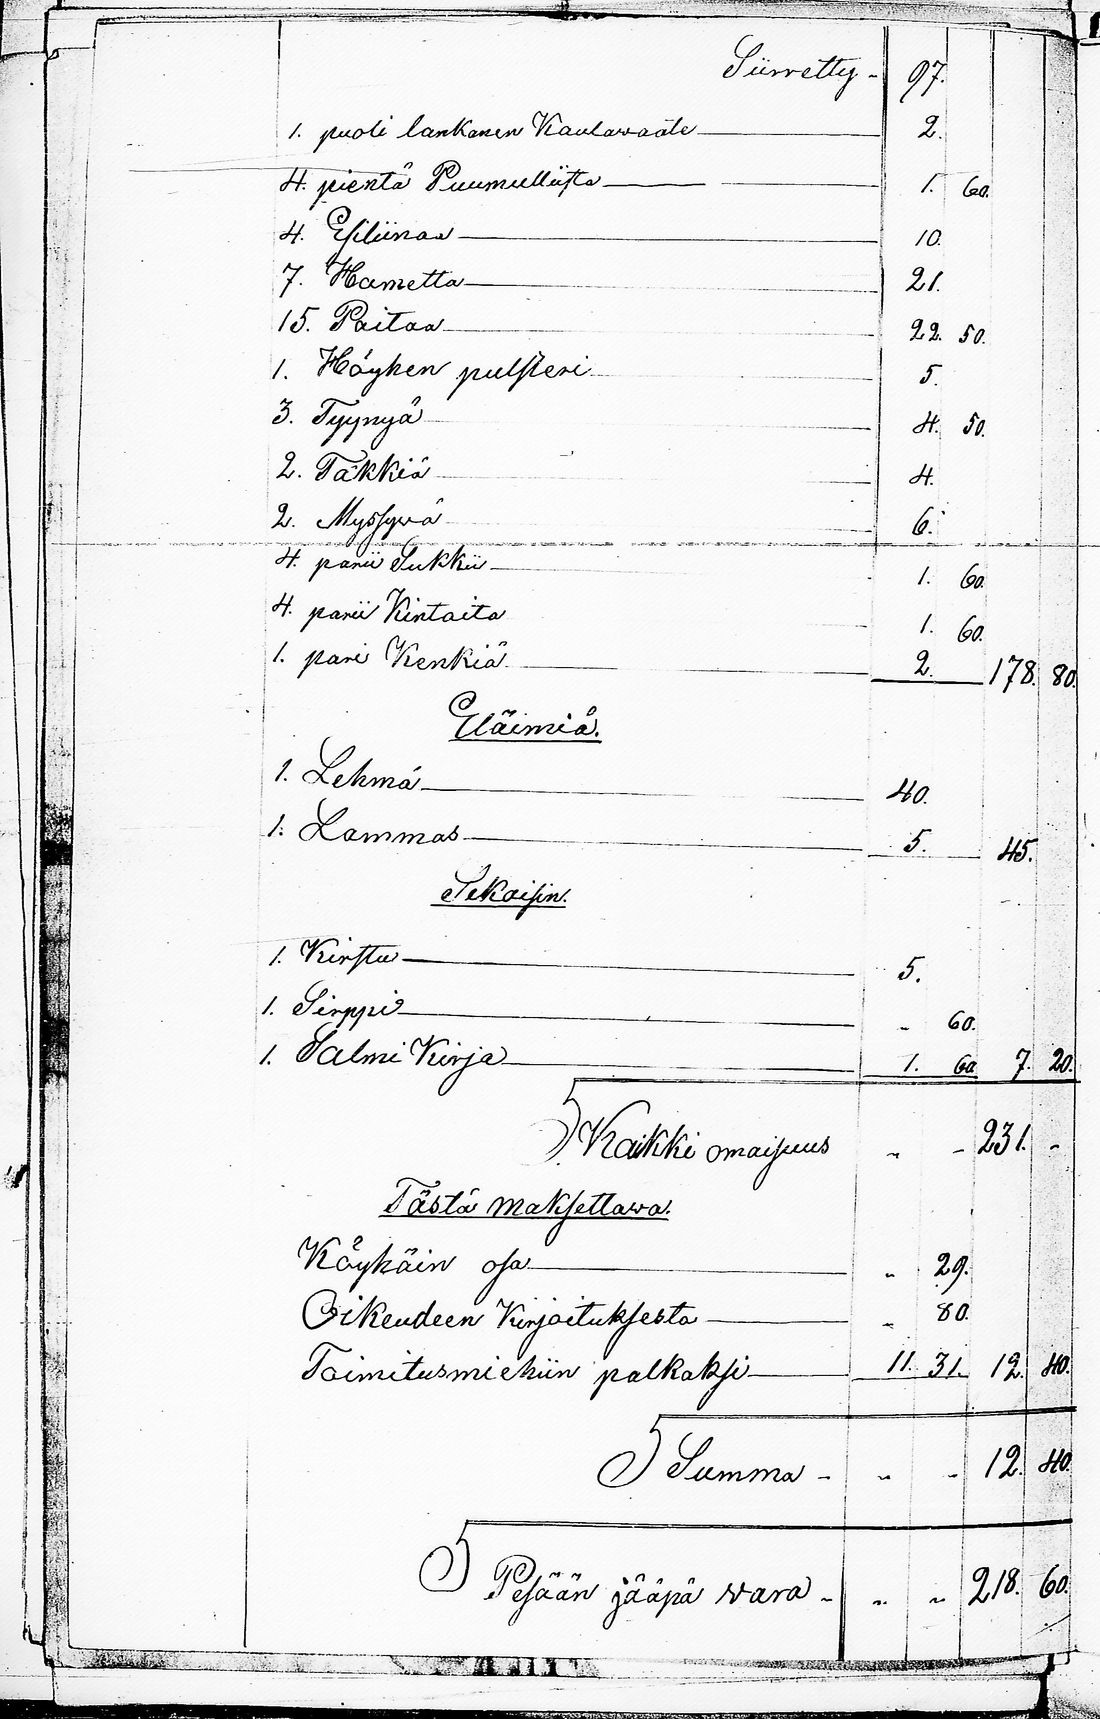 Siirretty - 97.
1. puoli lankanen Kaulawaate 2.
4. pientä Puumullista 1. 60.
4. Esiliinaa 10.
7. Hametta 21.
15. Paitaa 22. 50.
1. Höyhen pulsteri 5.
3. Tyynyä 4. 50.
2. Täkkiä 4.
2. Myssyvä 6.
4. parii Sukkii 1. 60.
4. parii Kintaita 1. 60.
1. pari Kenkiä 2. 178. 80.
Eläimiä.
1. Lehmä 40.
1. Lammas 5. 45.
Sekaisin.
1. Kirstu 5.
1. Sirppi „ 60.
1. Salmi Kirja 1. 60 7. 20.
Kaikki omaisuus „ - 231. -
Tästä maksettawa.
Köyhäin osa „ 29.
Oikeudeen Kirjoituksesta „ 80.
Toimitusmiehiin palkaksi 11. 31. 12. 40.
Summa - „ - 12. 40.
Pesään jääpä wara - „ „ 218. 60.